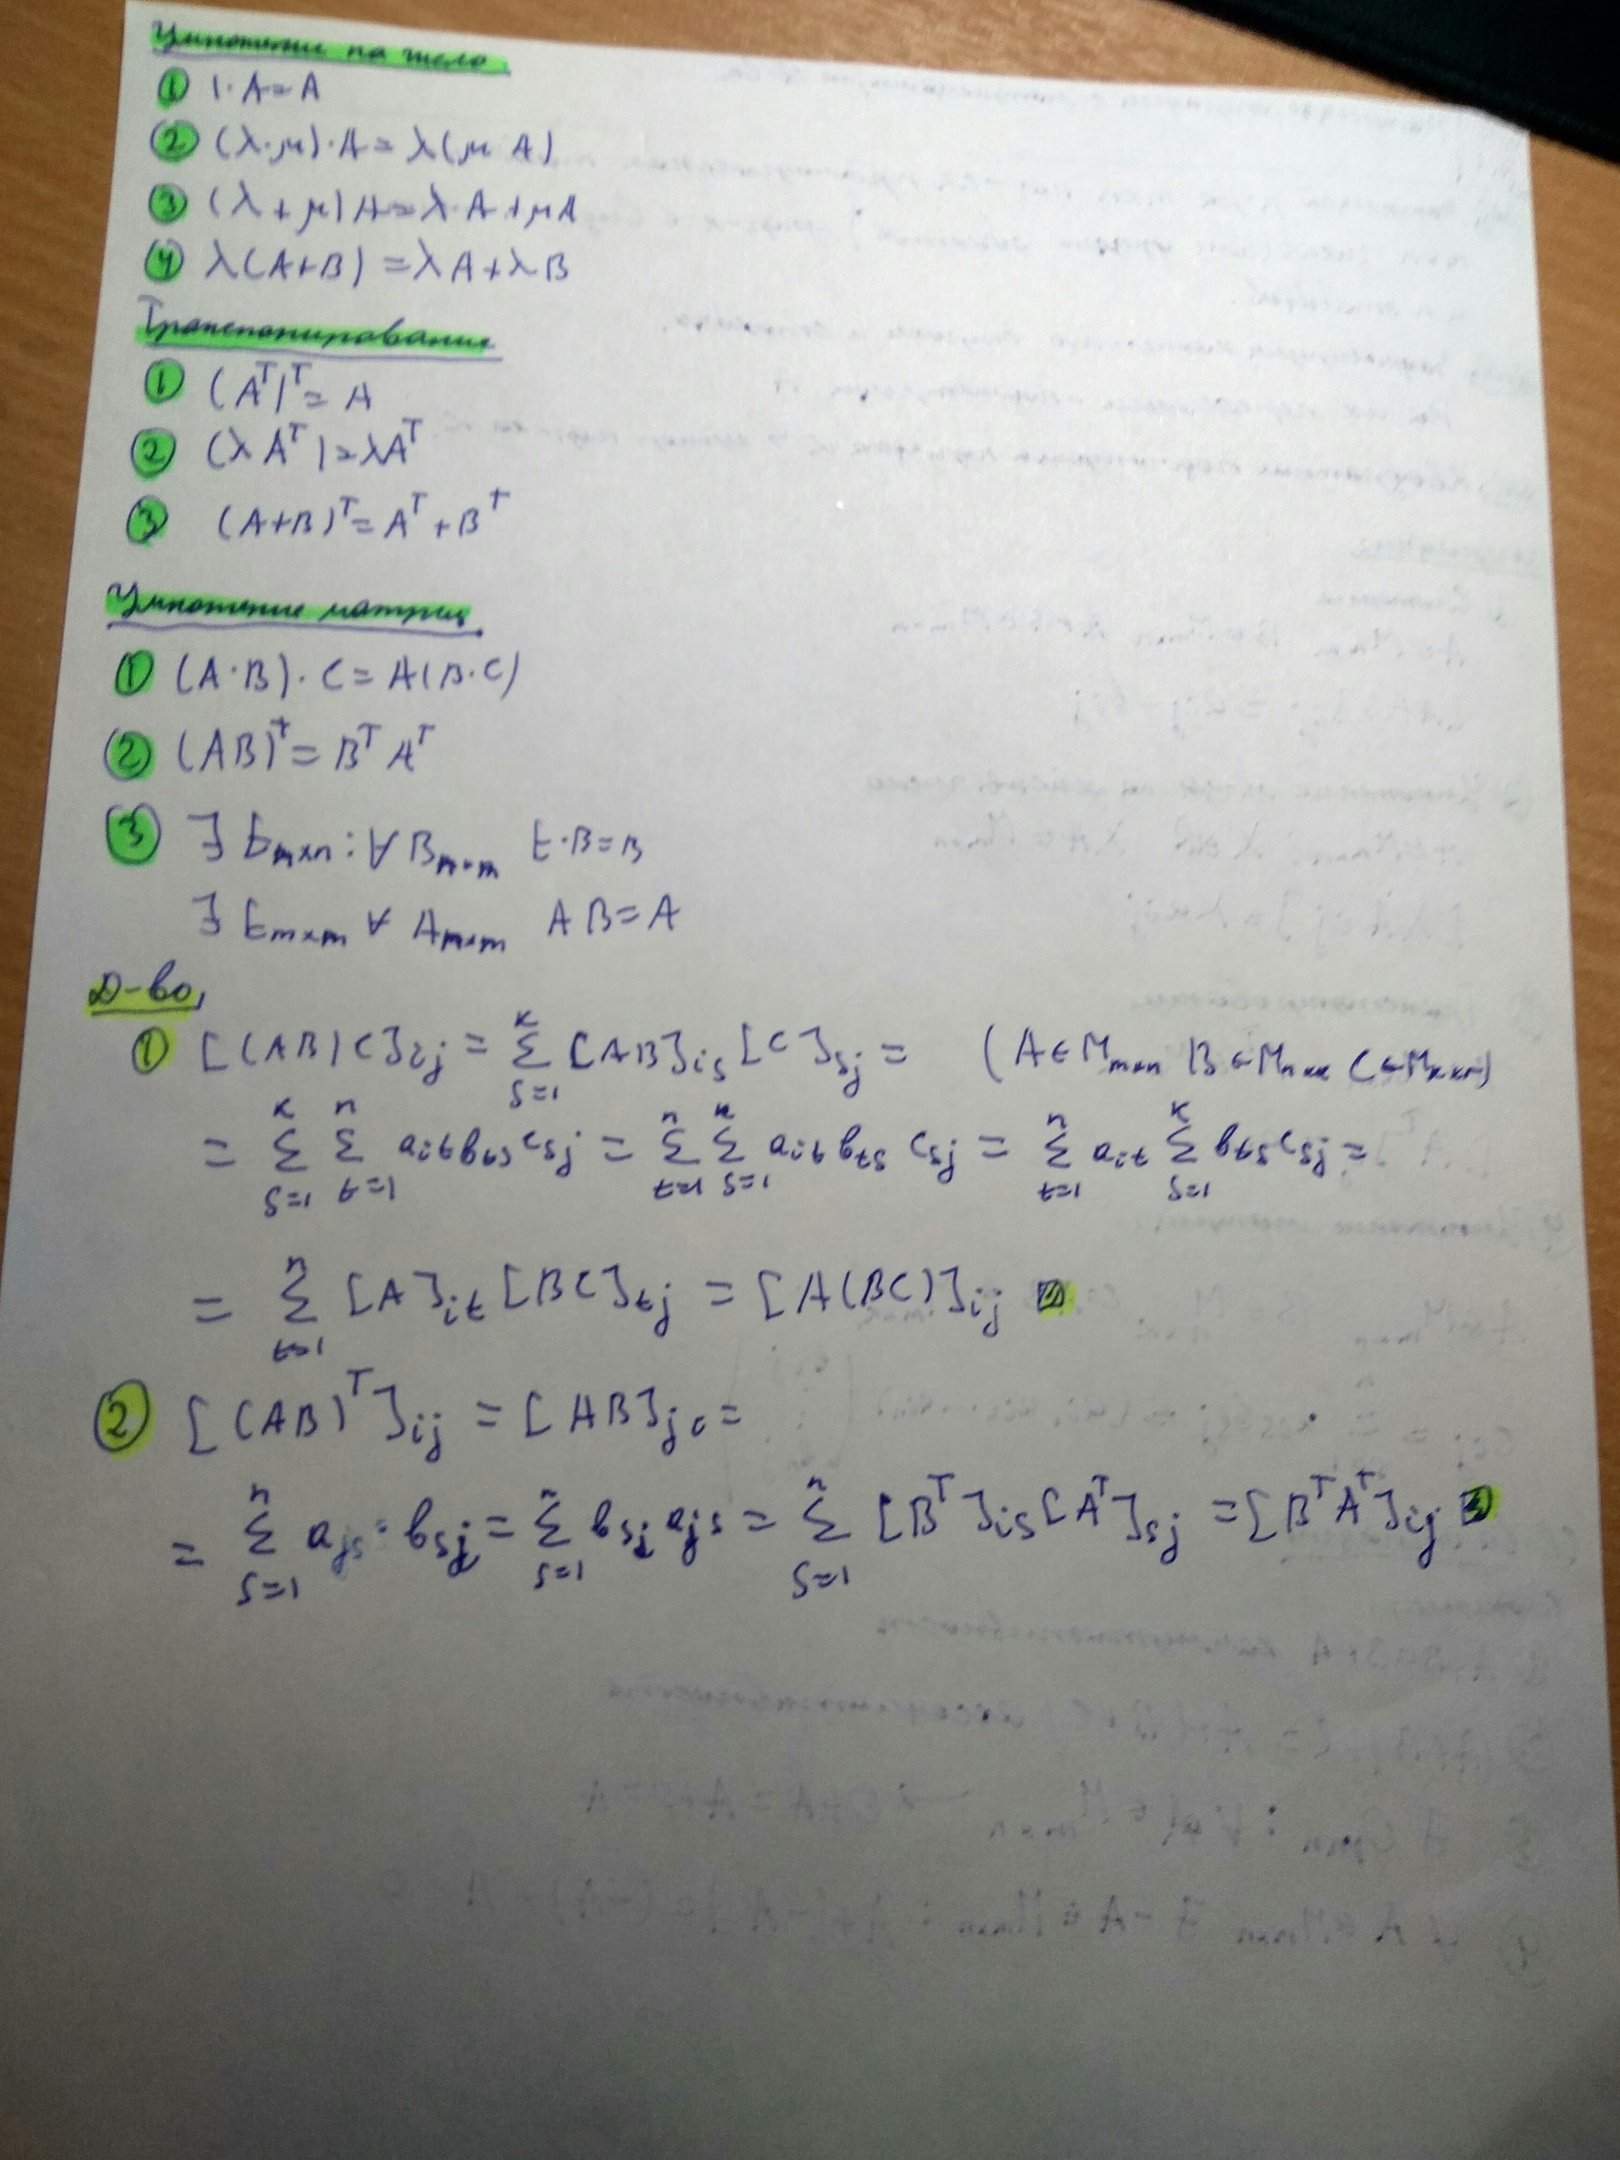 Умножение на число
① 1·A=A
② (λ·μ)·A=λ(μ A)
③ (λ+μ)A=λ·A+μA
④ λ(A+B)=λA+λB
Транспонирование
① (Aᵀ)ᵀ=A
② (λAᵀ)=λAᵀ
③ (A+B)ᵀ=Aᵀ+Bᵀ
Умножение матриц
① (A·B)·C=A(B·C)
② (AB)ᵀ=BᵀAᵀ
③ ∃ E_{m×n}: ∀ B_{n×m} E·B=B
∃ E_{m×m} ∀ A_{m×m} AB=A
Д-во,
① [(AB)C]_{ij} = \sum_{s=1}^{k} [AB]_{is}[C]_{sj} = (A∈M_{m×n} B∈M_{n×k} C∈M_{k×r})
= \sum_{s=1}^{k} \sum_{t=1}^{n} a_{it}b_{ts}c_{sj} = \sum_{t=1}^{n} \sum_{s=1}^{k} a_{it}b_{ts}c_{sj} = \sum_{t=1}^{n} a_{it} \sum_{s=1}^{k} b_{ts}c_{sj} =
= \sum_{t=1}^{n} [A]_{it}[BC]_{tj} = [A(BC)]_{ij}
② [(AB)ᵀ]_{ij} = [AB]_{ji} =
= \sum_{s=1}^{n} a_{js}·b_{sj} = \sum_{s=1}^{n} b_{si}a_{js} = \sum_{s=1}^{n} [Bᵀ]_{is}[Aᵀ]_{sj} = [BᵀAᵀ]_{ij}